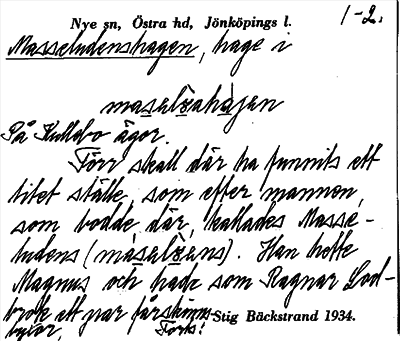 Nye sn, Östra hd, Jönköpings l.
1-2.
Masseludenshagen, hage i
masalʒahàjen
På Kullebo ägor.
Förr skall där ha funnits ett
litet ställe, som efter mannen,
som bodde där, kallades Masse-
ludens (màsalʒens). Han hette
Magnus och hade som Ragnar Lod-
brok ett par fårskinns-
byxor, Forts!
Stig Bäckstrand 1934.